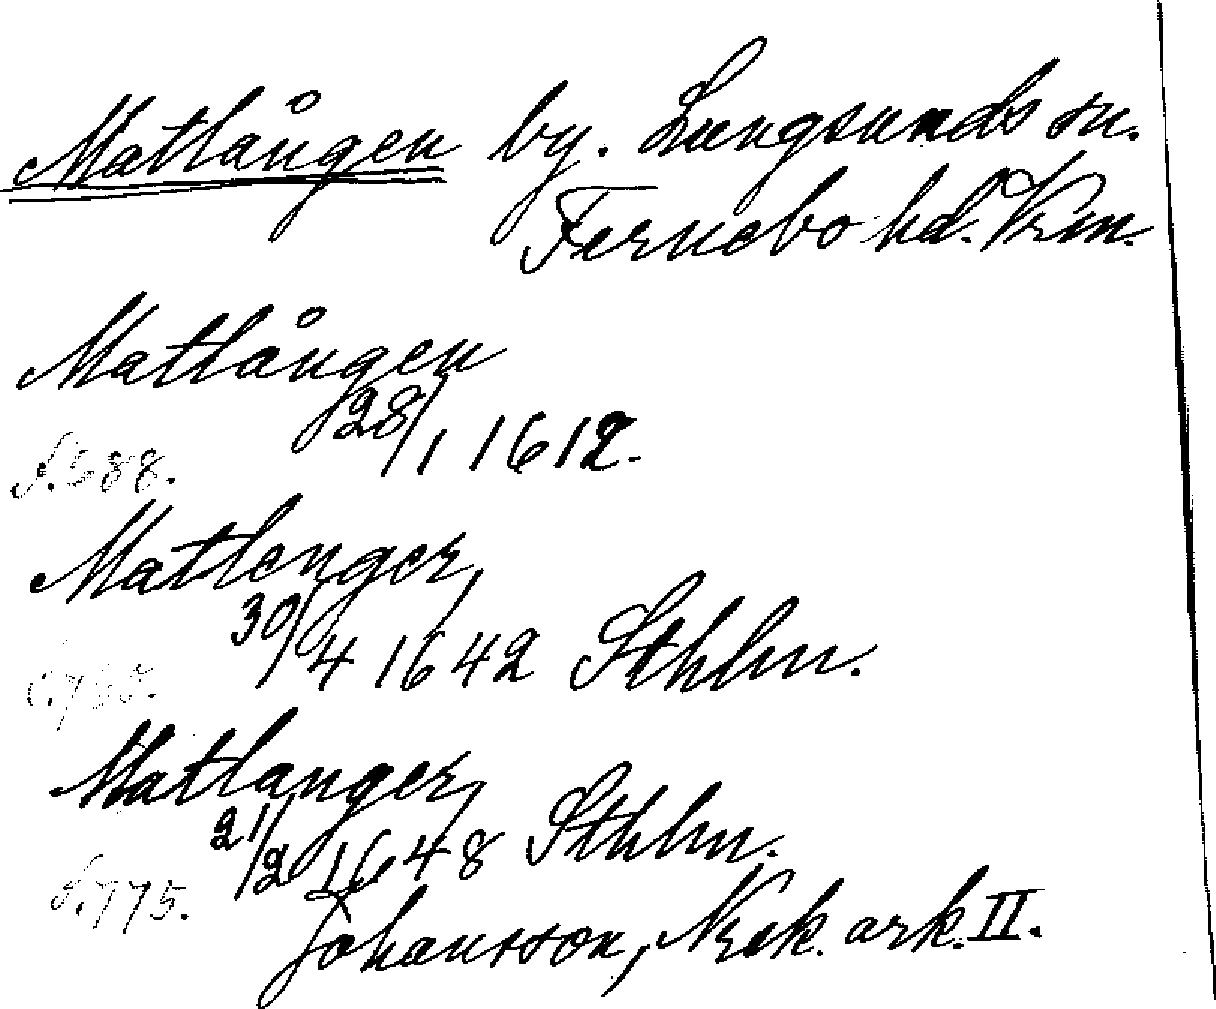 Matlången by. Lungsunds sn.
Fernebo hd. Vrm.
Matlången
28/1 1612.
S. 588.
Matlenger,
30/4 1642 Sthlm.
Matlanger,
21/2 1648 Sthlm.
S. 775.
Johansson, Nrk. ark. II.